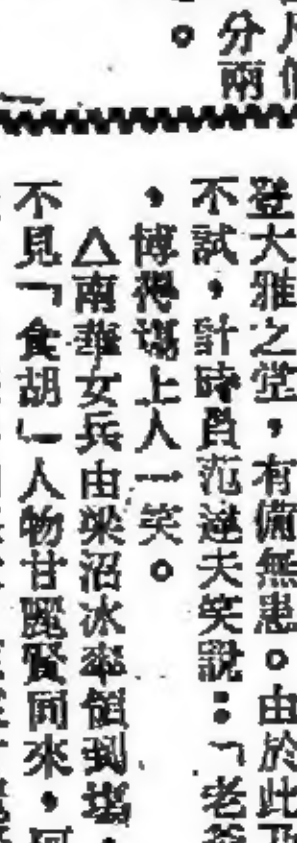 分兩
登大雅之堂，有備無患。由於此
不試，計時員范達夫笑說：「老
，博得場上人一笑。
△南華女兵由梁沼冰率領到場，
不見「食胡」人物甘麗賢同來，